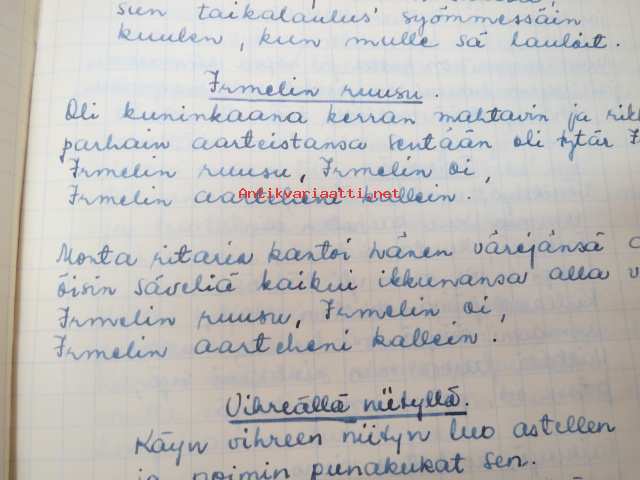 sun taikalaulus' syömmessäin
kuulen, kun mulle sä lauloit.
Irmelin ruusu.
Oli kuninkaana kerran mahtavin ja rikk
parhain aarteistansa sentään oli tytär I
Irmelin ruusu, Irmelin oi,
Irmelin aarteheni kallein.
Antikvariaatti.net
Monta ritaria kantoi hänen värejänsä
öisin säveliä kaikui ikkunansa alla v
Irmelin ruusu, Irmelin oi,
Irmelin aarteheni kallein.
Vihreällä niityllä.
Käyn vihreen niityn luo astellen
ja poimin punakukat sen.